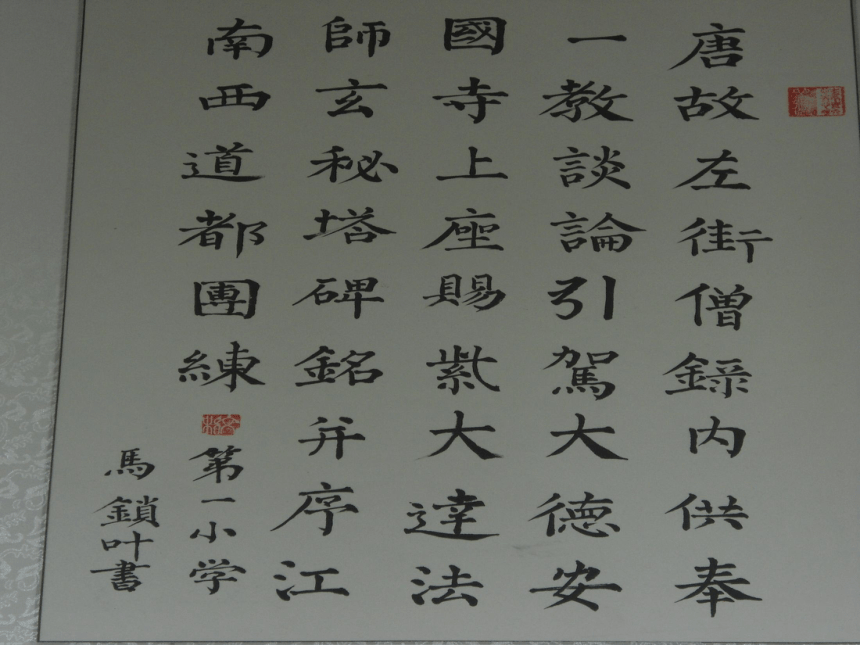 唐故左街僧録内供奉
一教談論引駕大德安
國寺上座賜紫大達法
師玄秘塔碑銘并序江
南西道都團練
第一小学
馬鎖叶書